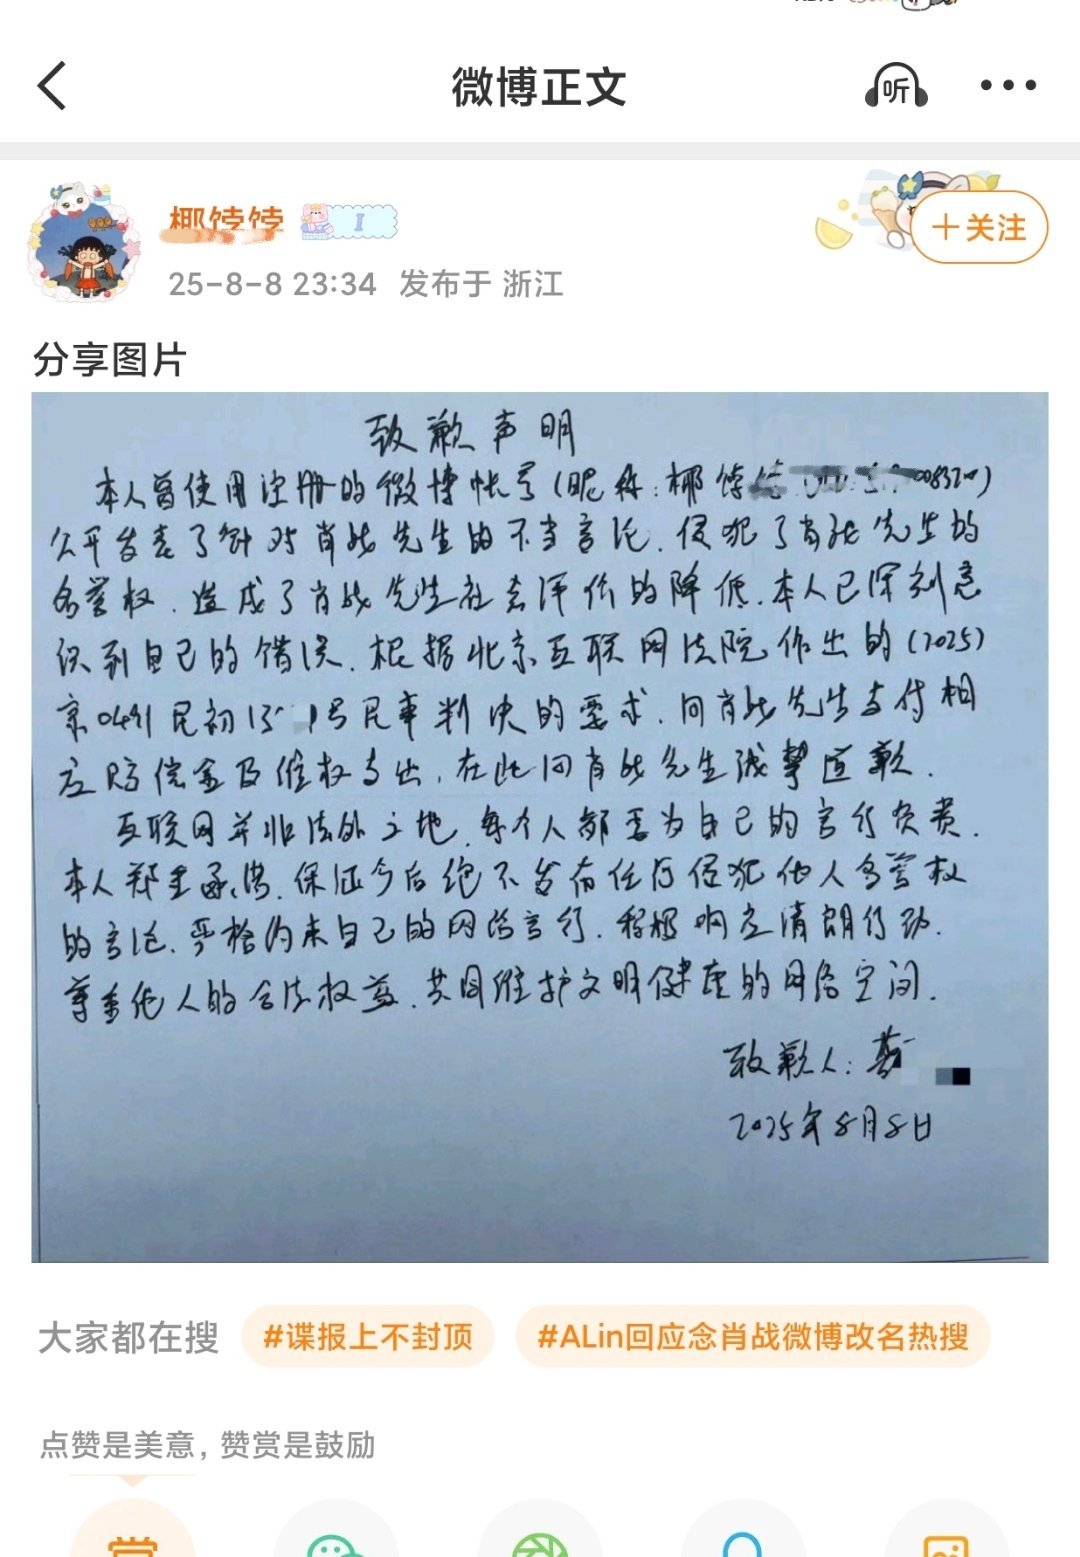 微博正文
听
椰饽饽
I
+关注
25-8-8 23:34 发布于 浙江
分享图片
致歉声明
本人曾使用注册的微博帐号(昵称:椰饽
公开发表了针对肖战先生的不当言论.侵犯了肖战先生的
名誉权.造成了肖战先生社会评价的降低.本人已深刻意
识到自己的错误.根据北京互联网法院作出的(2025)
京0491民初 号民事判决的要求.向肖战先生支付相
应赔偿金及维权支出.在此向肖战先生诚挚道歉.
互联网并非法外之地.每个人都要为自己的言行负责.
本人郑重承诺.保证今后绝不发布任何侵犯他人名誉权
的言论.严格约束自己的网络言行.积极响应清朗行动.
尊重他人的合法权益.共同维护文明健康的网络空间.
致歉人:
2025年8月8日
大家都在搜 #谍报上不封顶 #ALin回应念肖战微博改名热搜
点赞是美意,赞赏是鼓励
赏